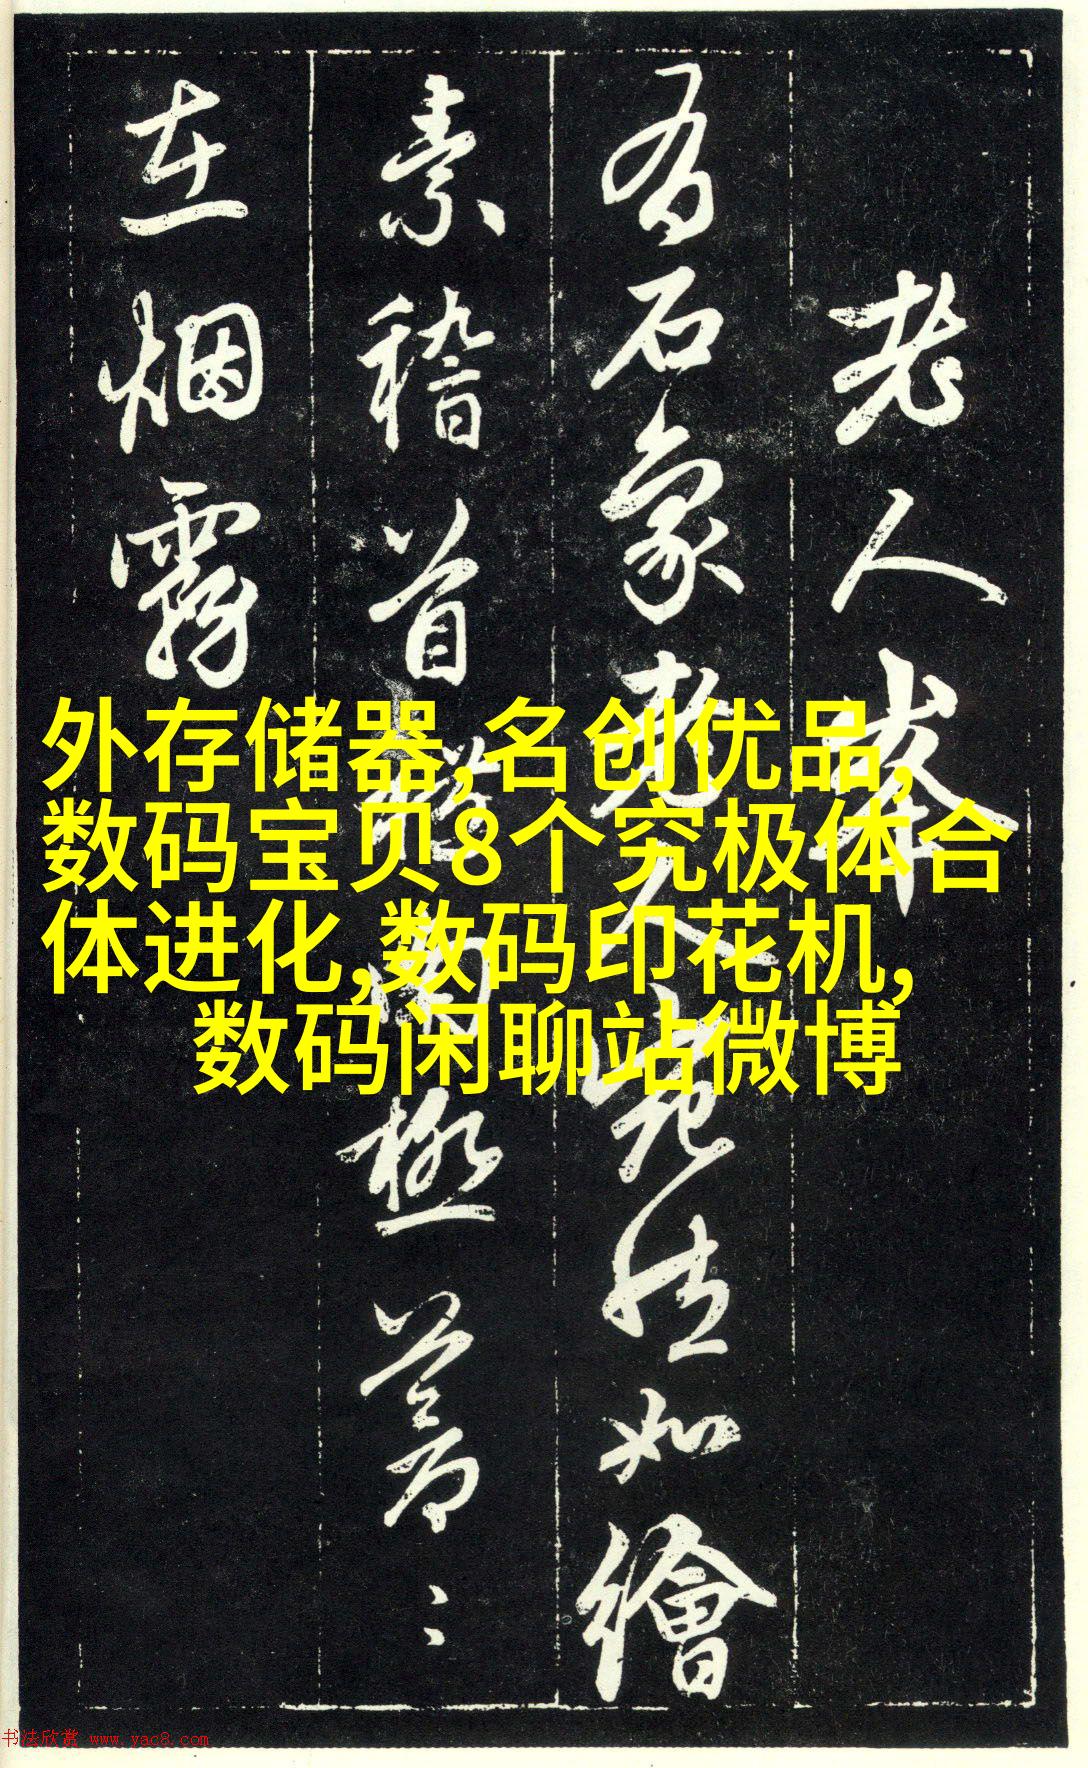 老人峯
有石象老人宛如繪
素稽首南極蒼〻
在烟霧
外存储器,名创优品,
数码宝贝8个究极体合
体进化,数码印花机,
数码闲聊站微博
书法欣赏 www.yac8.com